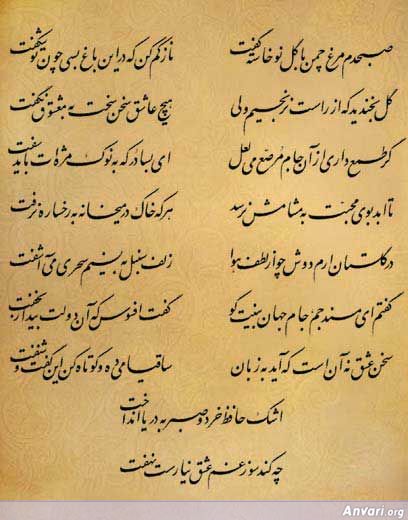 صبحدم مرغ چمن با گل نوخاسته گفت ناز کم کن که در این باغ بسی چون تو شکفت
گل بخندید که از راست نرنجیم ولی هیچ عاشق سخن سخت به معشوق نگفت
گر طمع داری از آن جام مرصع می لعل ای بسا در که به نوک مژه‌ات باید سفت
تا ابد بوی محبت به مشامش نرسد هر که خاک در میخانه به رخساره نرفت
در گلستان ارم دوش چو از لطف هوا زلف سنبل به نسیم سحری می‌آشفت
گفتم ای مسند جم جام جهان بینت کو گفت افسوس که آن دولت بیدار بخفت
سخن عشق نه آن است که آید به زبان ساقیا می ده و کوتاه کن این گفت و شنفت
اشک حافظ خرد و صبر به دریا انداخت
چه کند سوز غم عشق نیارست نهفت
Anvari.org